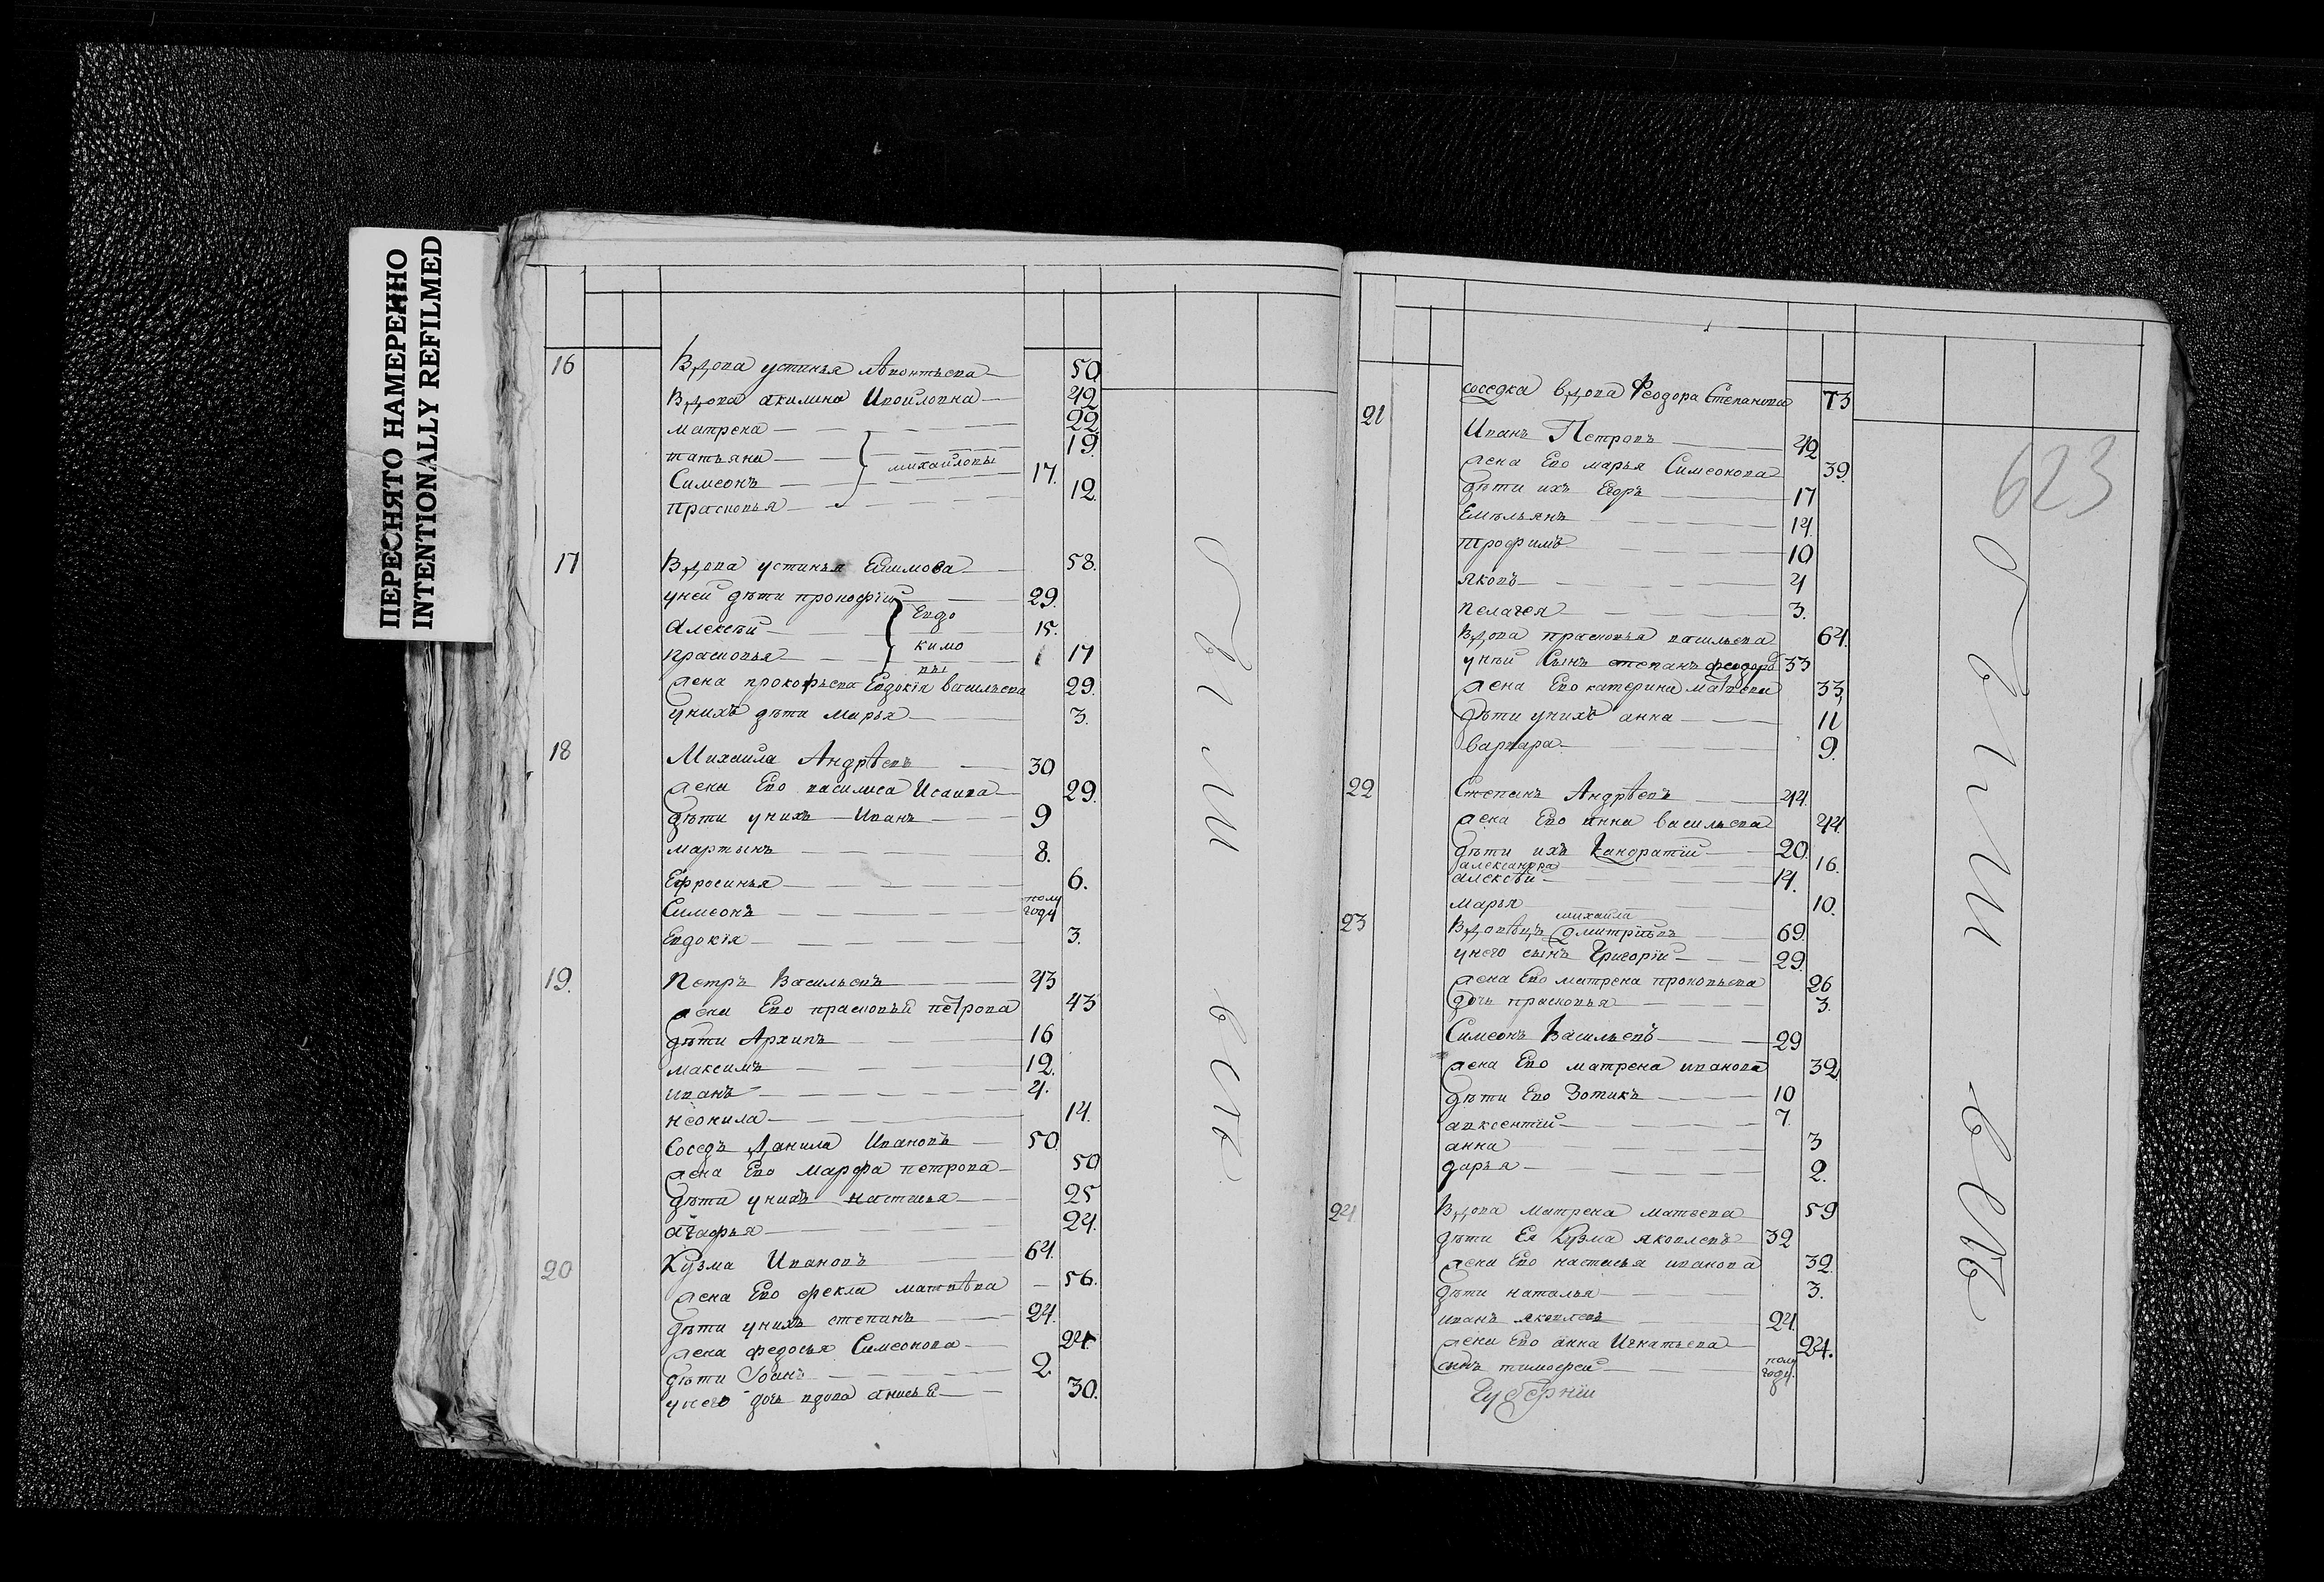 ПЕРЕСНЯТО НАМЕРЕННО
INTENTIONALLY REFILMED
16 Вдова устинья лѣвонтьева 50
Вдова акилина Ивойловна 42
матрена 22
татьяна 19
Симеонъ михайловы 17
прасковья 12
17 Вдова устинья Ефимова 58
у ней дѣти прокофій 29
Алексѣй Евдо 15
прасковья кимо 17
вы
жена прокофьева Евдокія васильева 29
у нихъ дѣти Марья 3
18 Михайла Андрѣевъ 30
жена Ево василиса Исаива 29
дѣти у нихъ Иванъ 9
мартынъ 8
Ефросинья 6
Симеонъ полу году
Евдокія 3
19 Петръ Васильевъ 43
жена Ево прасковьй петрова 43
дѣти Архипъ 16
максимъ 12
иванъ 4
неонила 14
Соседъ Данила Ивановъ 50
жена Ево Марфа петрова 50
дѣти у нихъ настасья 25
агафья 24
20 Кузма Ивановъ 64
жена Ево фекла матвѣва 56
дѣти у нихъ степанъ 24
жена федосья Симеонова 24
дѣти Іоанъ 2
у него дочь вдова анисья 30
были
все
623
соседка вдова Феодора Степанова 73
21 Иванъ Петровъ 42
жена Ево марья Симеонова 39
дѣти ихъ Егоръ 17
Емельянъ 14
трофимъ 10
яковъ 4
пелагея 3
Вдова прасковья васильева 64
у ней Сынъ степанъ феодоро 33
жена Ево катерина матвеива 33
дѣти у нихъ анна 11
варвара 9
22 Степанъ Андрѣевъ 44
жена Ево анна васильева 44
дѣти ихъ Кандратій 20
александра 16
алексѣй 14
марья 10
михайла
23 Вдовецъ дмитріевъ 69
у него сынъ Григорій 29
жена Ево матрена прокопьева 26
дочь прасковья 3
Симеонъ Васильевъ 29
жена Ево матрена иванова 32
дѣти Ево Зотикъ 10
авксентій 7
анна 3
дарья 2
24 Вдова Матрена Матвева 59
дѣти Ея Кузма яковлевъ 32
жена Ево настасья иванова 32
дѣти наталья 3
иванъ яковлевъ 24
жена Ево анна Игнатьева 24
сынъ тимофей полу году
Губерніи
были
все